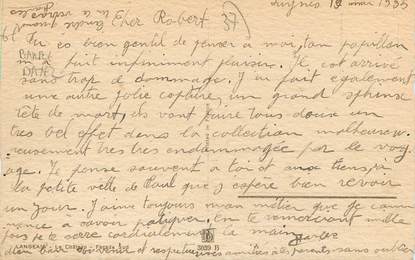 19 mai 1935
Cher Robert 37
Tu es bien gentil de penser à moi, ton papillon
m'a fait infiniment plaisir. Il est arrivé
sans trop de dommage. J'ai fait également
une autre jolie capture, un grand sphinx
tête de mort, ils vont faire tous deux un
très bel effet dans la collection malheureu-
reusement très très endommagée par le voy-
age. Je pense souvent à toi et aux tiens, à
la petite ville de que j'espère bien revoir
un jour. J'aime toujours mon métier que je com-
mence à savoir pratiquer. En te remerciant mille
fois je te serre cordialement la main
bien bon souvenir et respectueuses amitiés à tes parents sans oublier
3039 B